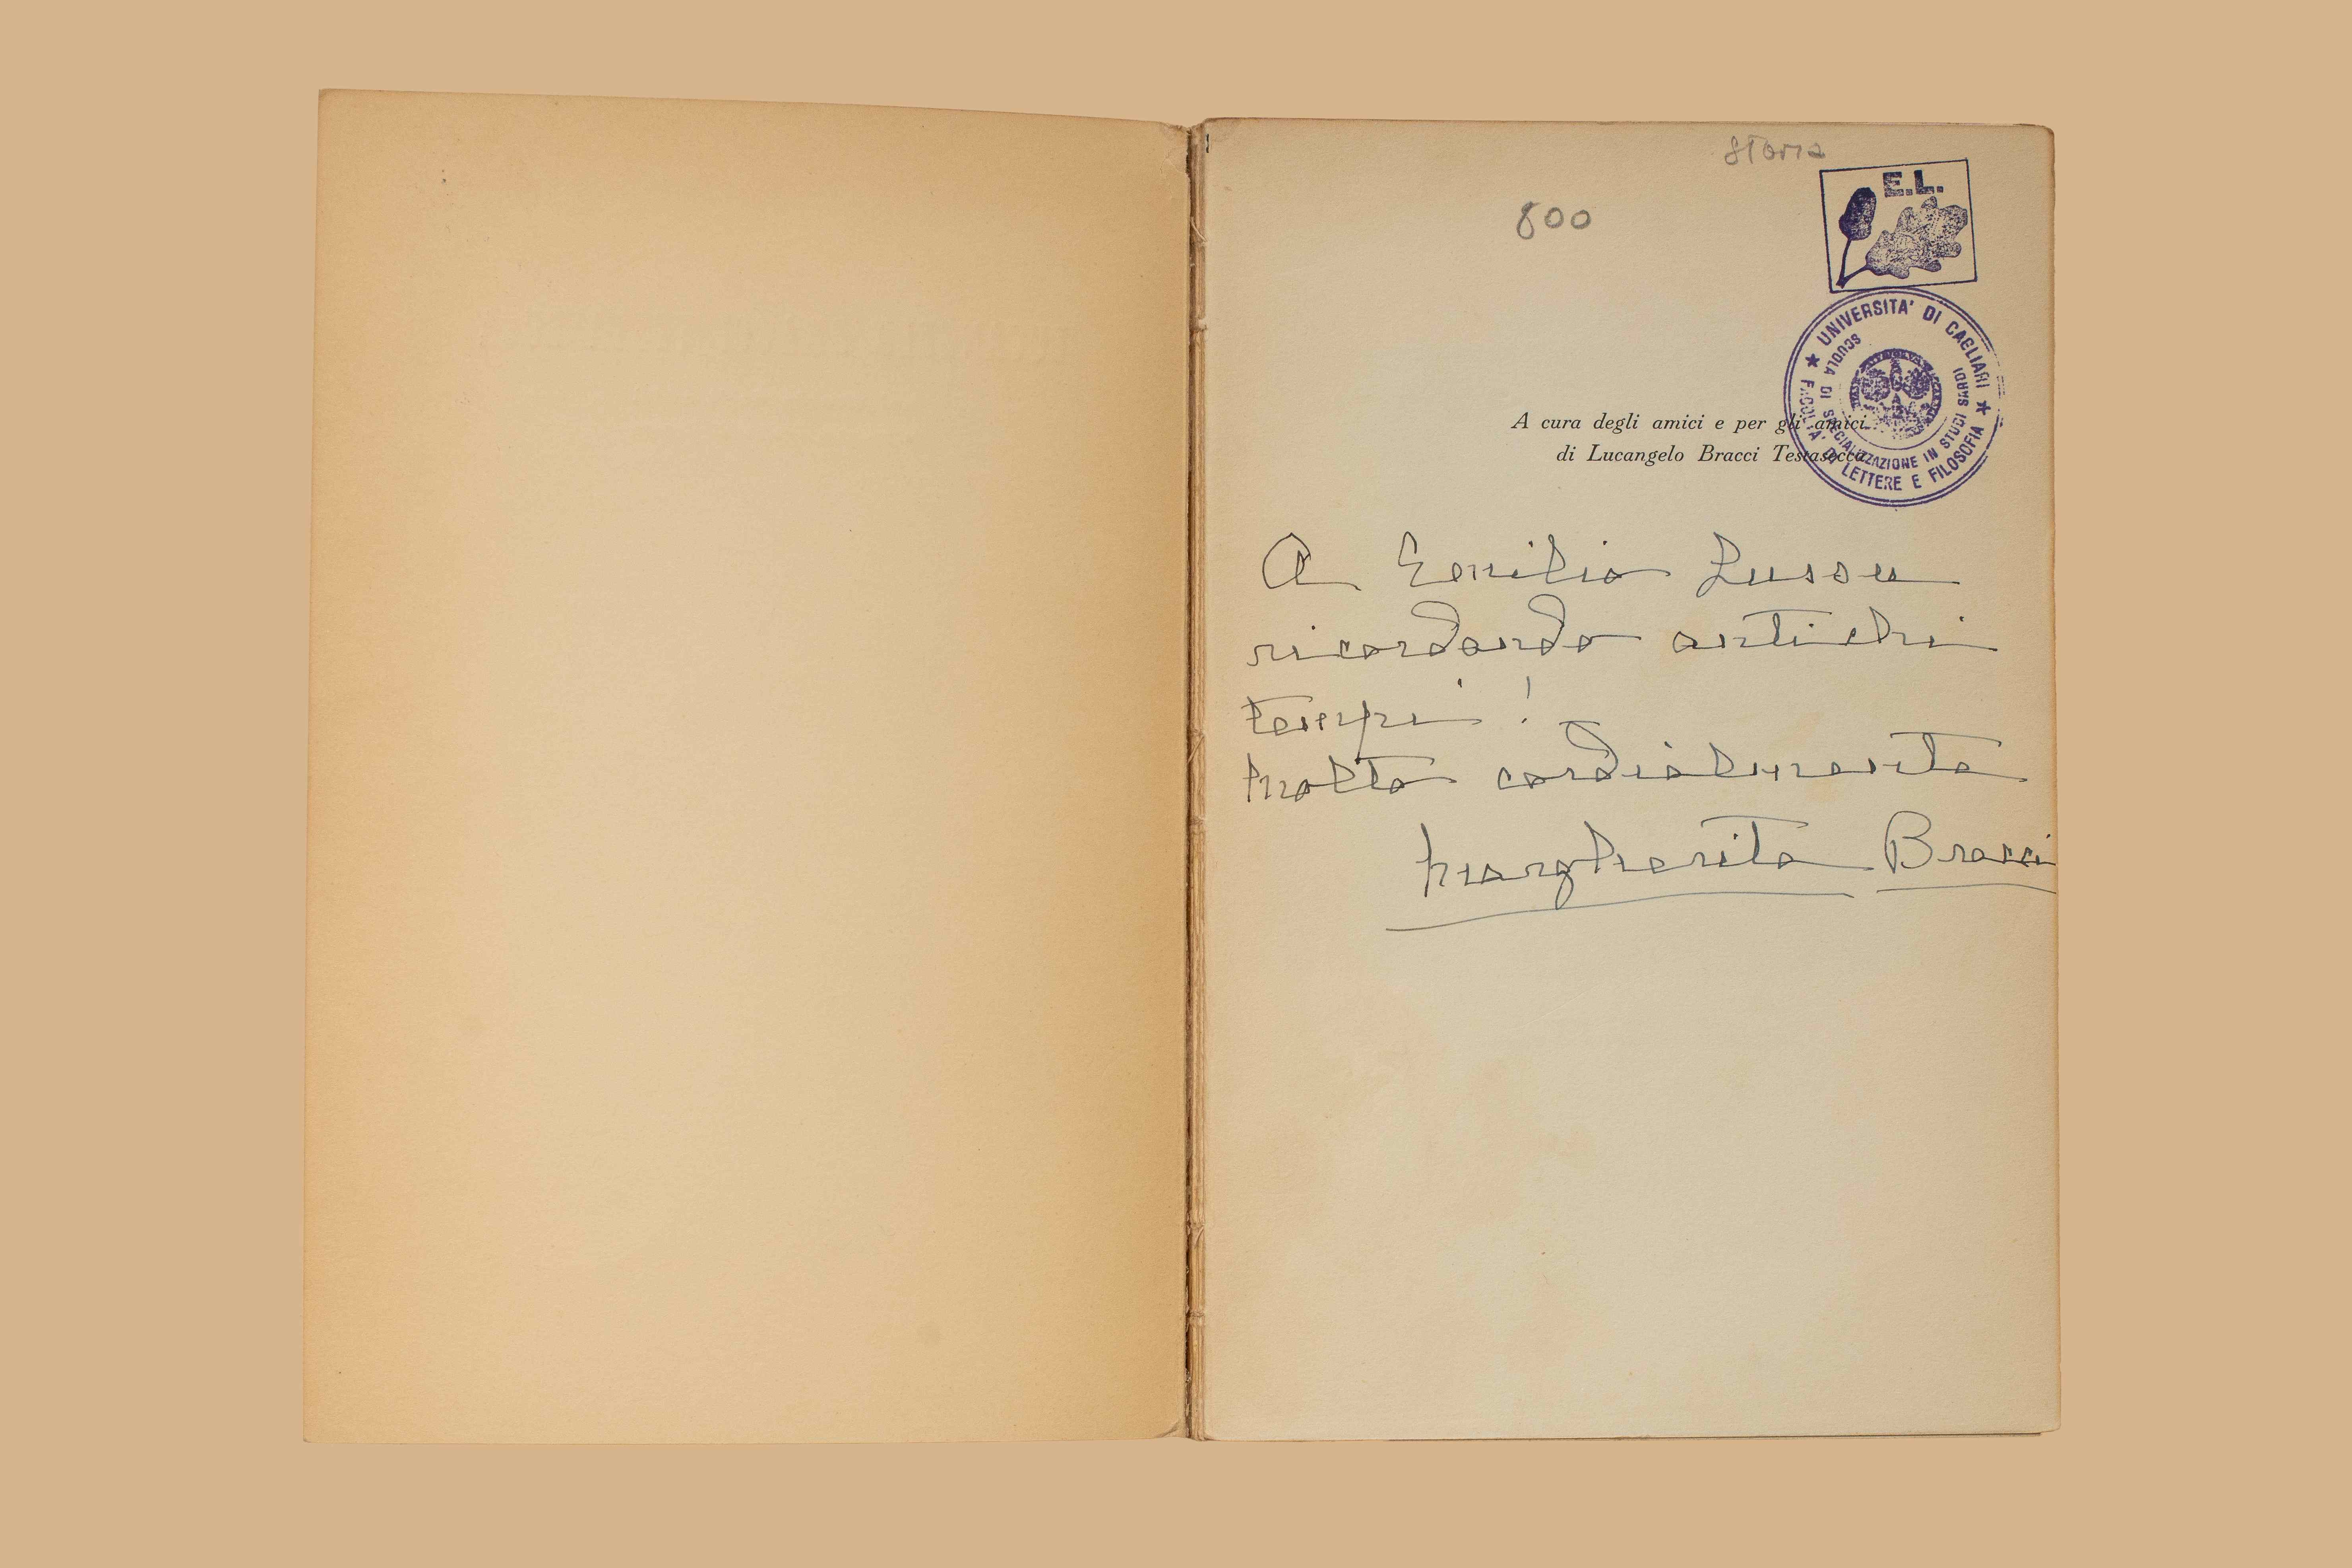 storia
E.L.
800
★ UNIVERSITA' DI CAGLIARI ★
FACOLTA' DI LETTERE E FILOSOFIA
SCUOLA DI SPECIALIZZAZIONE IN STUDI SARDI
A cura degli amici e per gli amici
di Lucangelo Bracci Testasecca
A Emilio Lussu
ricordando antichi
tempi!
Molto cordialmente
Margherita Bracci